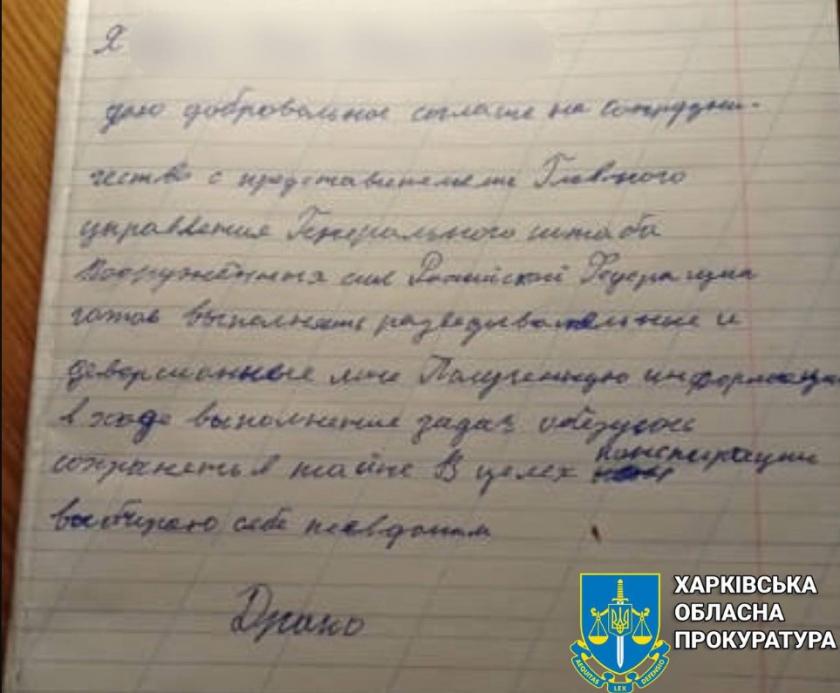 Я
даю добровольное соглаше на сотрудни-
чество с представителеме Главного
управления Генерального штаба
Вооружённыя сил Росийской Федерации
готов выполнять разведывательные и
деверсионные мне Полученную информаци
в ходе выполнение задач обезуюсь
сохранеть в тайне В целех конспирации
выбираю себе псевдоним
Драко
ХАРКІВСЬКА
ОБЛАСНА
ПРОКУРАТУРА
AEQUITAS LEX DEFENSIO